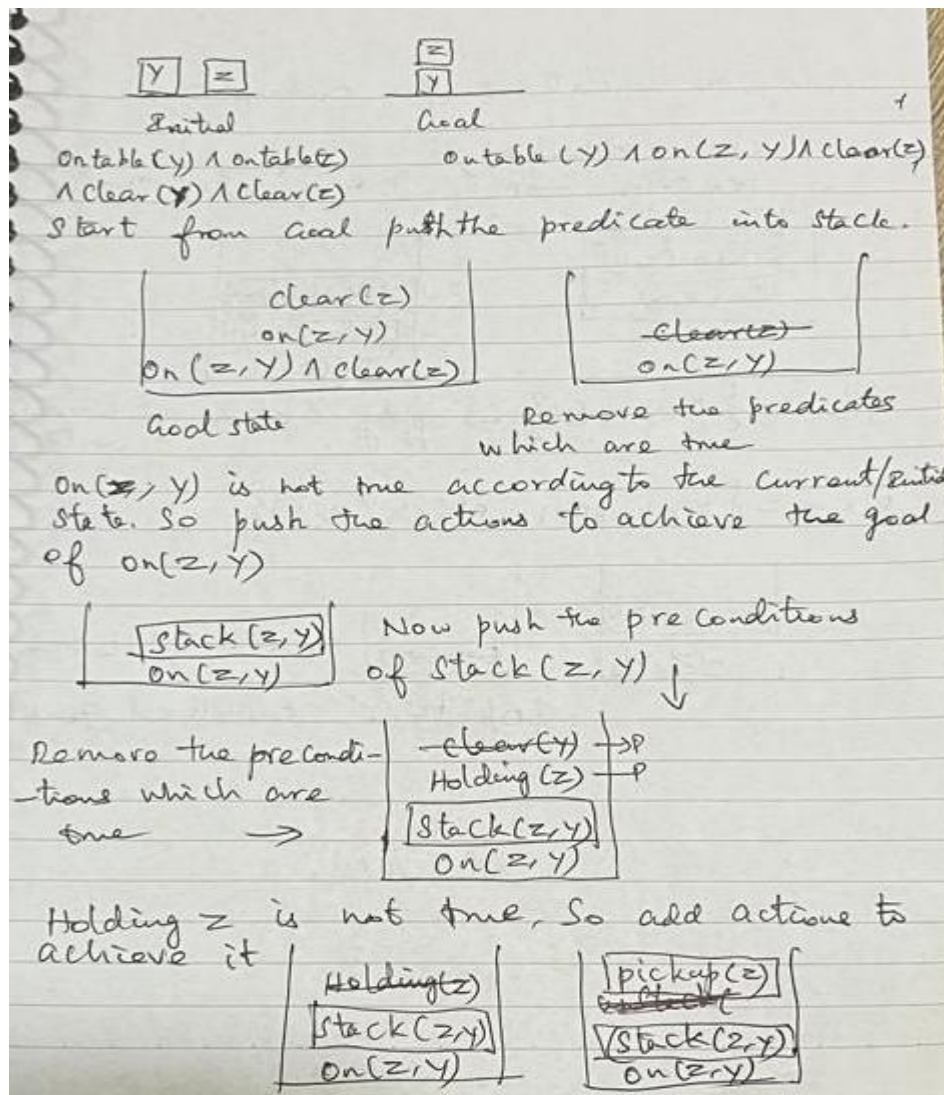 Y Z
Z
Y
Initial Goal
Ontable(Y) ∧ ontable(Z) ontable(Y) ∧ on(Z, Y) ∧ Clear(Z)
∧ Clear(Y) ∧ Clear(Z)
Start from Goal push the predicate into stack.
Clear(Z)
on(Z,Y)
on(Z,Y) ∧ clear(Z)
Clear(Z)
on(Z,Y)
Goal state
Remove the predicates
which are true
On(Z, Y) is not true according to the Current/Initial
State. So push the actions to achieve the goal
of on(Z,Y)
Stack(Z,Y)
on(Z,Y)
Now push the preconditions
of Stack(Z,Y) ↓
Remove the precondi-
-tions which are
true →
Clear(Y) → P
Holding(Z) → P
Stack(Z,Y)
on(Z,Y)
Holding Z is not true, So add actions to
achieve it
Holding(Z)
Stack(Z,Y)
on(Z,Y)
pickup(Z)
Stack(Z,Y)
on(Z,Y)